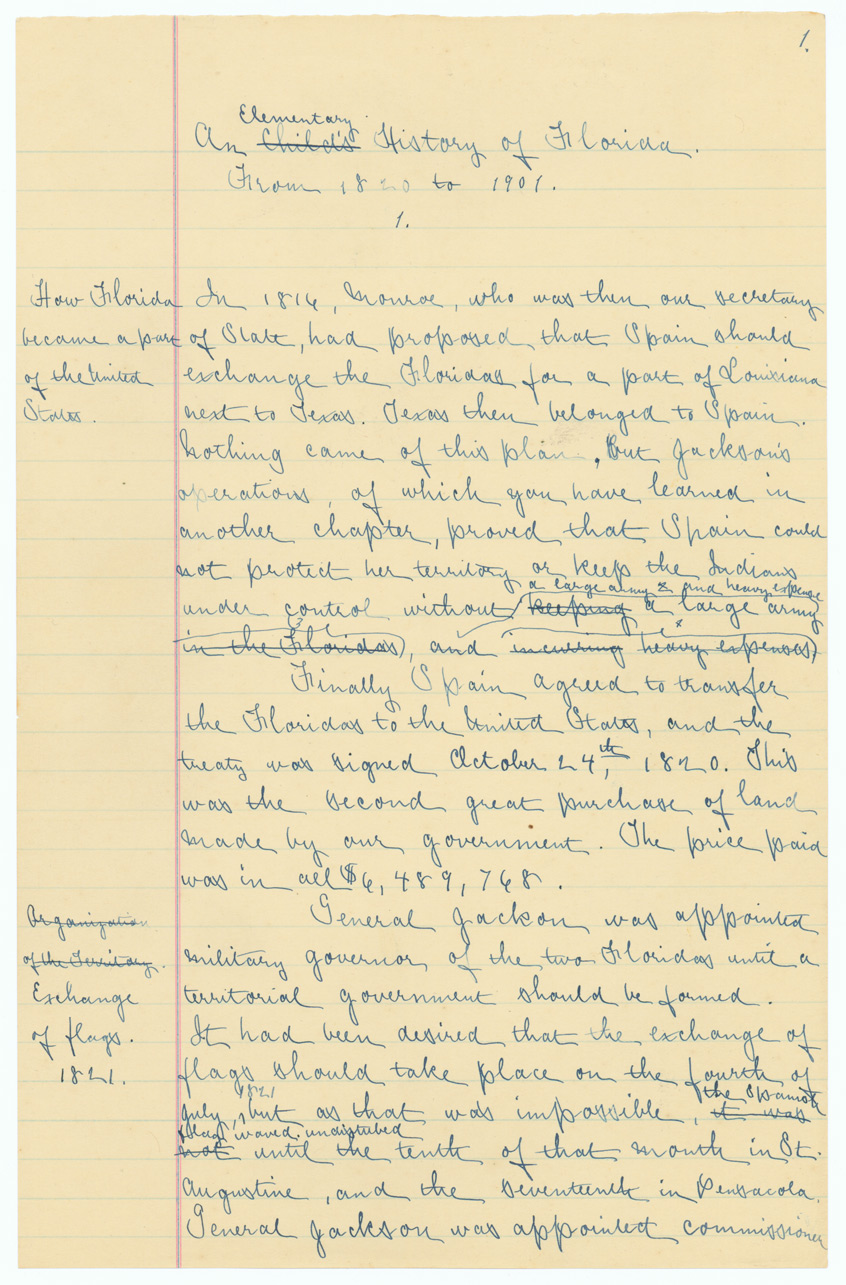 1.
Elementary
An Child's History of Florida.
From 1820 to 1901.
1.
How Florida
became a part
of the United
States.
In 1816, Monroe, who was then our secretary
of State, had proposed that Spain should
exchange the Floridas for a part of Louisiana
next to Texas. Texas then belonged to Spain.
Nothing came of this plan, But Jackson's
operations, of which you have learned in
another chapter, proved that Spain could
not protect her territory or keep the Indians
a large army & and heavy expense
under control without keeping a large army
in the Floridas), and incurring heavy expenses,
Finally Spain agreed to transfer
the Floridas to the United States, and the
treaty was signed October 24th, 1820. This
was the second great purchase of land
made by our government. The price paid
was in all $6,489,768.
Organization
of the Territory.
Exchange
of flags.
1821.
General Jackon was appointed
military governor of the two Floridas until a
territorial government should be formed.
It had been desired that the exchange of
flags should take place on the fourth of
1821 the Spanish
July, but as that was impossible, it was
flag waved undistubed
not until the tenth of that month in St.
Augustine, and the seventeenth in Pensacola.
General Jackson was appointed commissioner